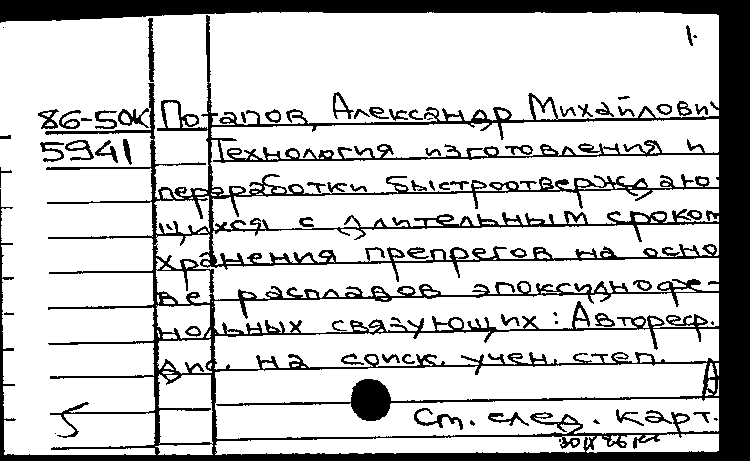 1.
86-50К Потапов, Александр Михайлович
5941 Технология изготовления и
переработки быстроотверждаю-
щихся с длительным сроком
хранения препрегов на осно
ве расплавов эпоксиднофе-
нольных связующих: Автореф.
дис. на соиск. учен. степ.
А
5 См. след. карт.